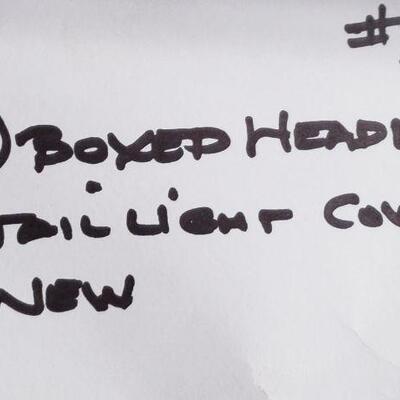 #
) BOXED HEAD
TAIL LIGHT COV
NEW